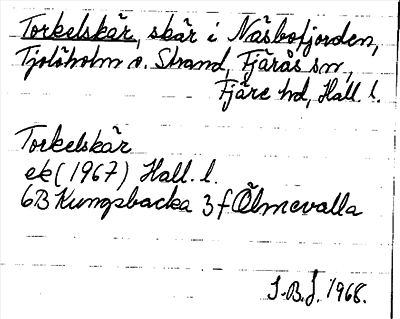 Torkelskär, skär i Näsbofjorden,
Tjolöholm o. Strand, Fjärås sn,
Fjäre hd, Hall. l.
Torkelskär
ek (1967) Hall. l.
6B Kungsbacka 3 f Ölmevalla
I.B.J. 1968.